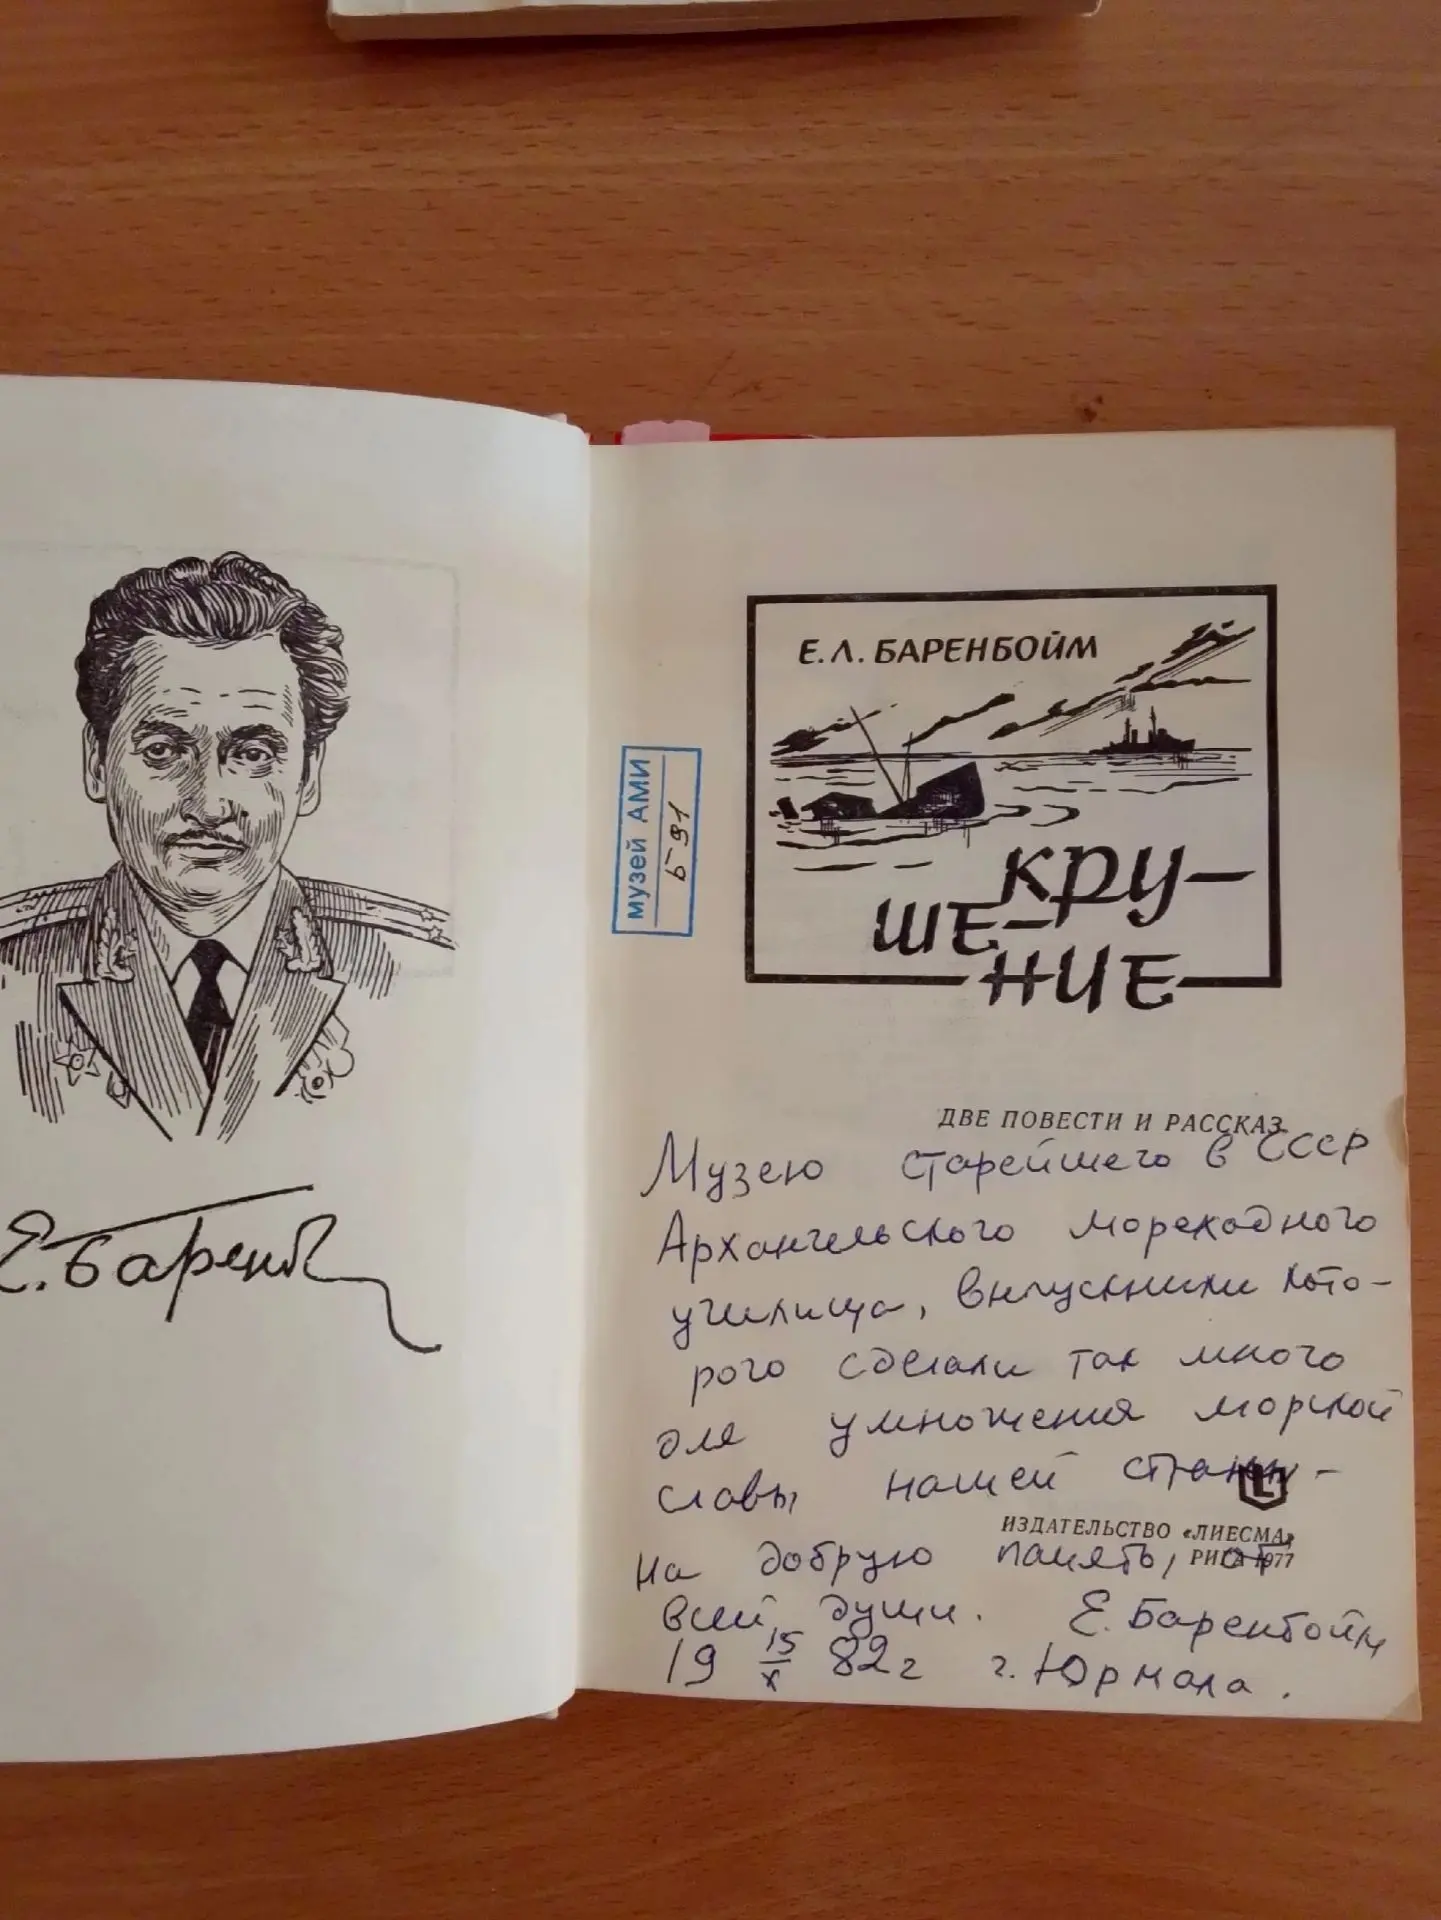 Е. Баренб
музей АМИ
Б 91
Е. Л. БАРЕНБОЙМ
КРУ-
ШЕ-
НИЕ
ДВЕ ПОВЕСТИ И РАССКАЗ
Музею старейшего в СССР
Архангельского мореходного
училища, выпускники кото-
рого сделали так много
для умножения морской
славы нашей страны -
L
ИЗДАТЕЛЬСТВО «ЛИЕСМА»
РИГА 1977
На добрую память, от
всей души. Е. Баренбойм
19 15/X 82 г г. Юрмала.